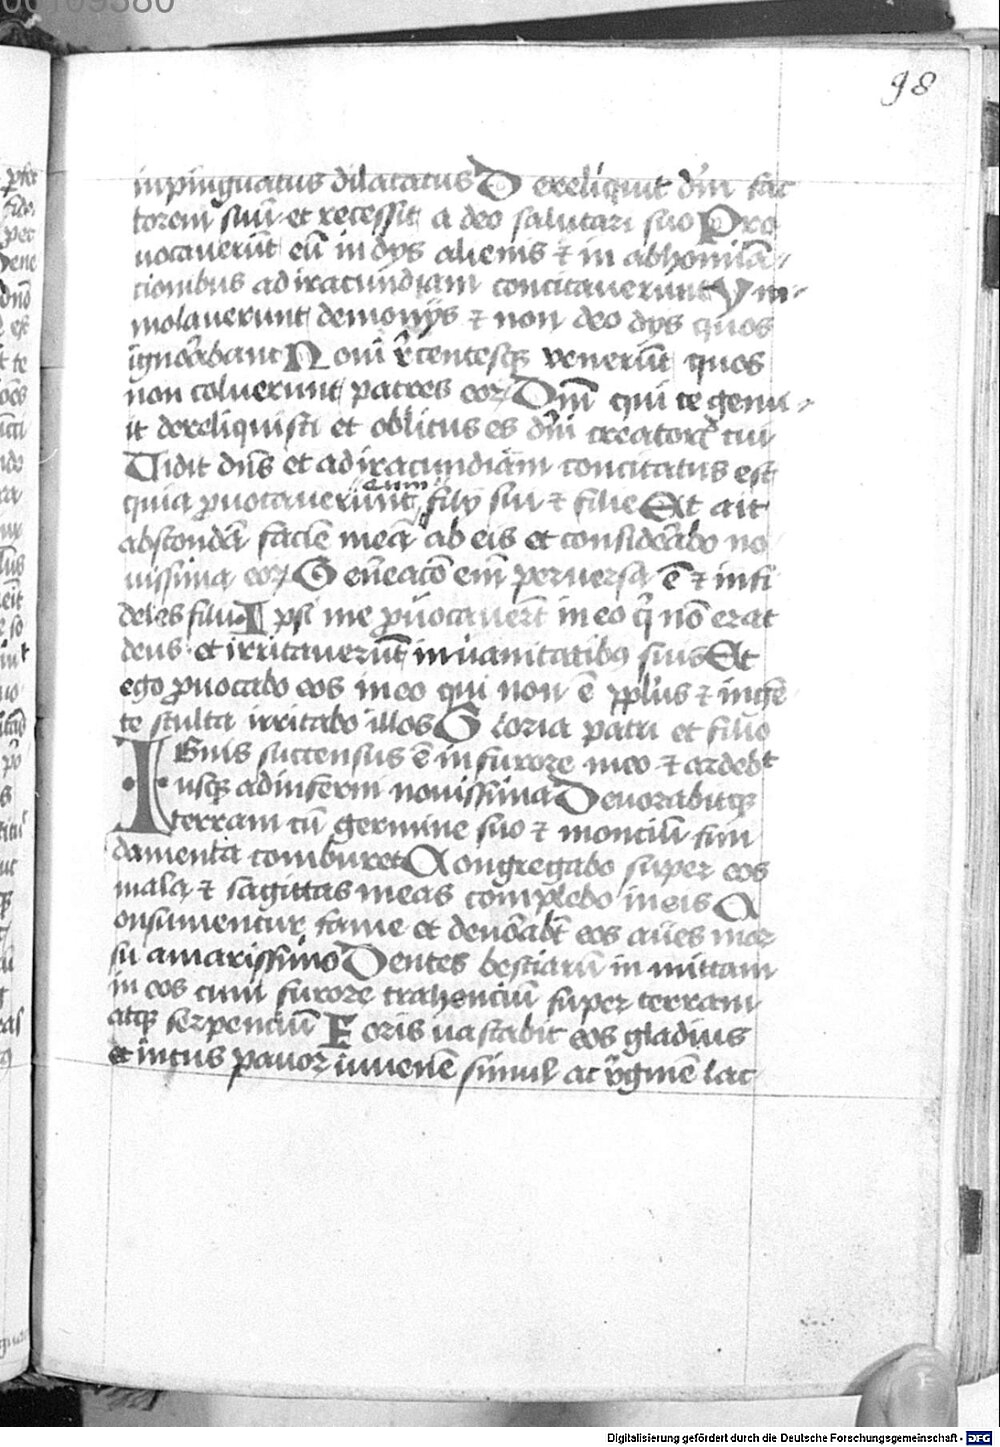 98
inpinguatus dilatatus Dereliquit dm̄ fac
torem suū et recessit a deo salutari suo Pro
vocaverūt eū in dijs alienis ⁊ in abhomīa-
cionibus ad iracundiam concitaverunt Ym-
molaverunt demonijs ⁊ non deo dijs quos
ignorabant Noui recentesqꝫ venerūt quos
non coluerunt patres eoꝝ Dm̄ qui te genu-
it dereliquisti et oblitus es dm̄i creatorꝭ tui
Vidit dn̄s et ad iracundiam concitatus est
eum
quia ꝓuocaverunt filij sui ⁊ filie Et ait
abscondā faciē meā ab eis et considerabo no
uissima eoꝝ Gen̄eacō em̄ perversa ē ⁊ infi
deles filij Ipsi me ꝓuocauer̄t in eo q̄ nō erat
deus et irritauerūt in vanitatibꝯ suis Et
ego ꝓuocabo eos in eo qui non ē ppl̄us ⁊ in gēn
te stulta irritabo illos Gloria patri et filio
Ignis succensus ē in furore meo ⁊ ardebt
usqꝫ ad inferni nouissima Deuorabitqꝫ
terram cū germine suo ⁊ monciū fun
damenta comburet Congregabo super eos
mala ⁊ sagittas meas complebo in eis C
onsumentur fame et deuorabt̄ eos aues mor
su amarissimo Dentes bestiarū in mittam
in eos cum furore trahenciū super terram
atqꝫ serpenciū Foris uastabit eos gladius
et intus pavor iuuenē simul ac v̄ginē lac
Digitalisierung gefördert durch die Deutsche Forschungsgemeinschaft - DFG